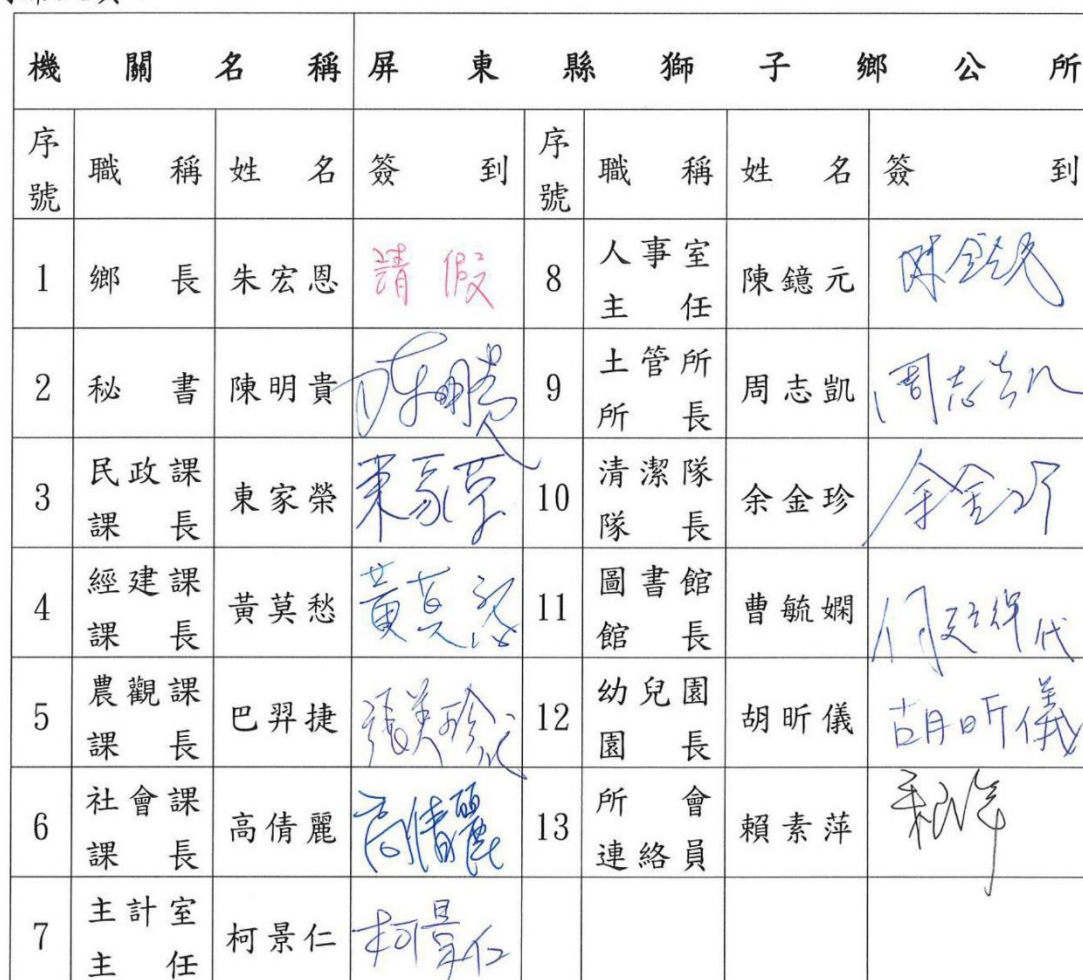 機關名稱 屏東縣獅子鄉公所
序號 職稱 姓名 簽到 序號 職稱 姓名 簽到
1 鄉長 朱宏恩 請假 8 人事室主任 陳鐿元 陳鐿元
2 秘書 陳明貴 陳明貴 9 土管所所長 周志凱 周志凱
3 民政課課長 東家榮 東家榮 10 清潔隊隊長 余金珍 余金珍
4 經建課課長 黃莫愁 黃莫愁 11 圖書館館長 曹毓嫻 代
5 農觀課課長 巴羿捷 張美珍代 12 幼兒園園長 胡昕儀 胡昕儀
6 社會課課長 高倩麗 高倩麗 13 所會連絡員 賴素萍
7 主計室主任 柯景仁 柯景仁